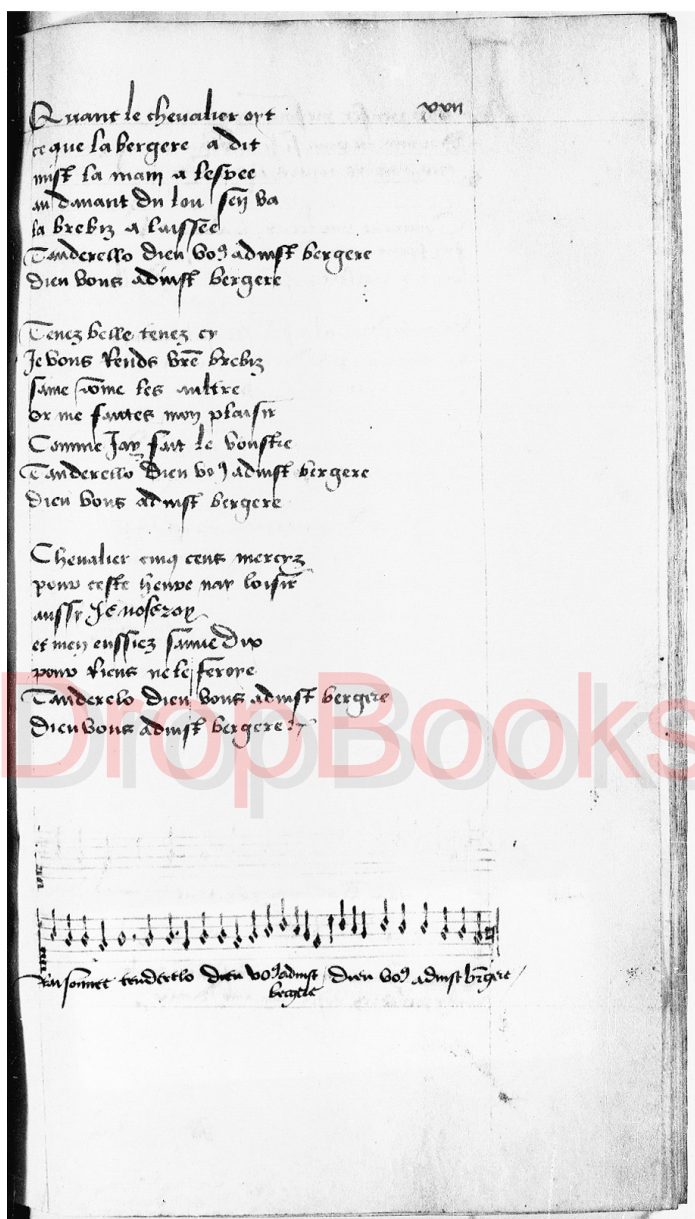 xxii
Quant le chevalier oyt
ce que la bergere a dit
mist la main a lespee
au davant du lou sen va
la brebiz a laissee
Tanderello dieu vo9 admist bergere
dieu vous admist bergere
Tenez belle tenez cy
Je vous Rends vre brebiz
saine come les aultre
or me faictes mon plaisir
Comme Jay fait le voustre
Tanderello dieu vo9 admist bergere
dieu vous admist bergere
Chevalier cinq cens mercyz
pour ceste heure nay loisir
aussi Je noseroy
et men eussiez
pour Riens ne le feroye
Tanderelo dieu vous admist bergere
Dieu vous admist bergere
DropBooks
tenderelo dieu vo9 admist dieu vo9 admist bergere
bergere